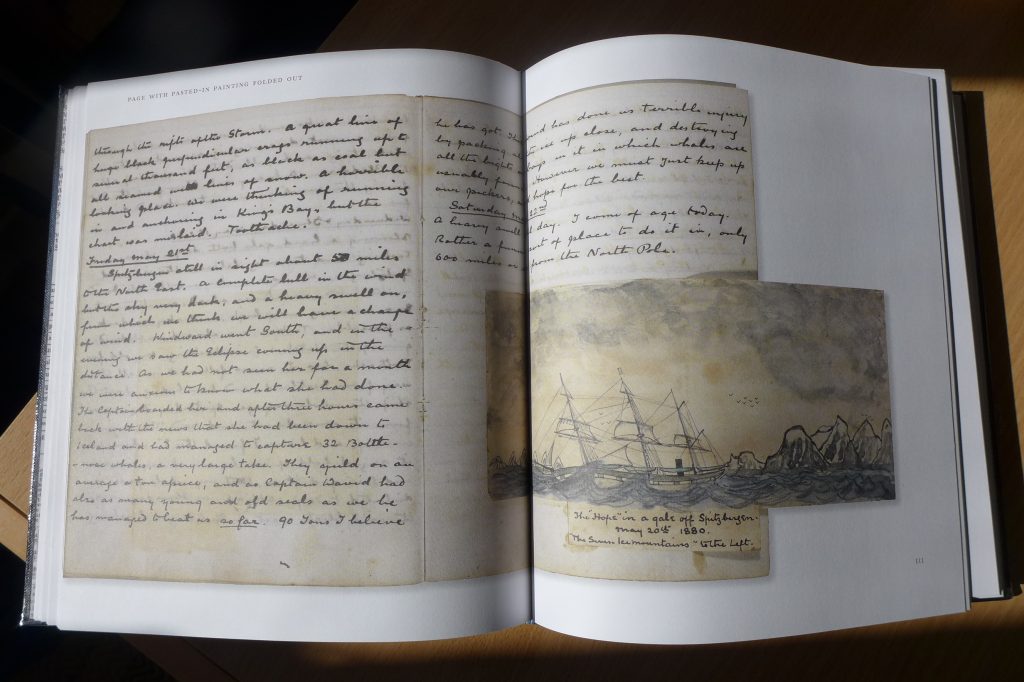 PAGE WITH PASTED-IN PAINTING FOLDED OUT
through the rifts after the Storm. A great line of
huge black perpendicular crags running up to
several thousand feet, as black as coal but
all seamed with lines of snow. A horrible
looking place. We were thinking of running
in and anchoring in King's Bay, but the
chart was mislaid. Toothache.
Friday May 21st
Spitzbergen still in sight about 50 miles
to the North East. A complete lull in the wind
but the sky very dark, and a heavy swell on,
from which we think we will have a change
of wind. Windward went South, and in the
evening we saw the Eclipse coming up in the
distance. As we had not seen her for a month
we were anxious to know what she had done.
The Captain boarded her and after three hours came
back with the news that she had been down to
Iceland and had managed to capture 32 Bottle-
-nose whales, a very large take. They yield, on an
average a ton apiece, and as Captain David had
also as many young and old seals as we he
has managed to beat us so far. 90 Tons I believe
he has got. Th
by packing
all the bights
usually
our
Saturday
A heavy swell
Rather a funn
600 miles or
wind has done us terrible injury
ice up close, and destroying
bays in it in which whales are
However we must just keep up
hopes for the best.
22nd
day. I come of age today.
sort of place to do it in, only
from the North Pole.
The "Hope" in a gale off Spitzbergen.
May 20th 1880.
The Seven Icemountains" to the Left.
111